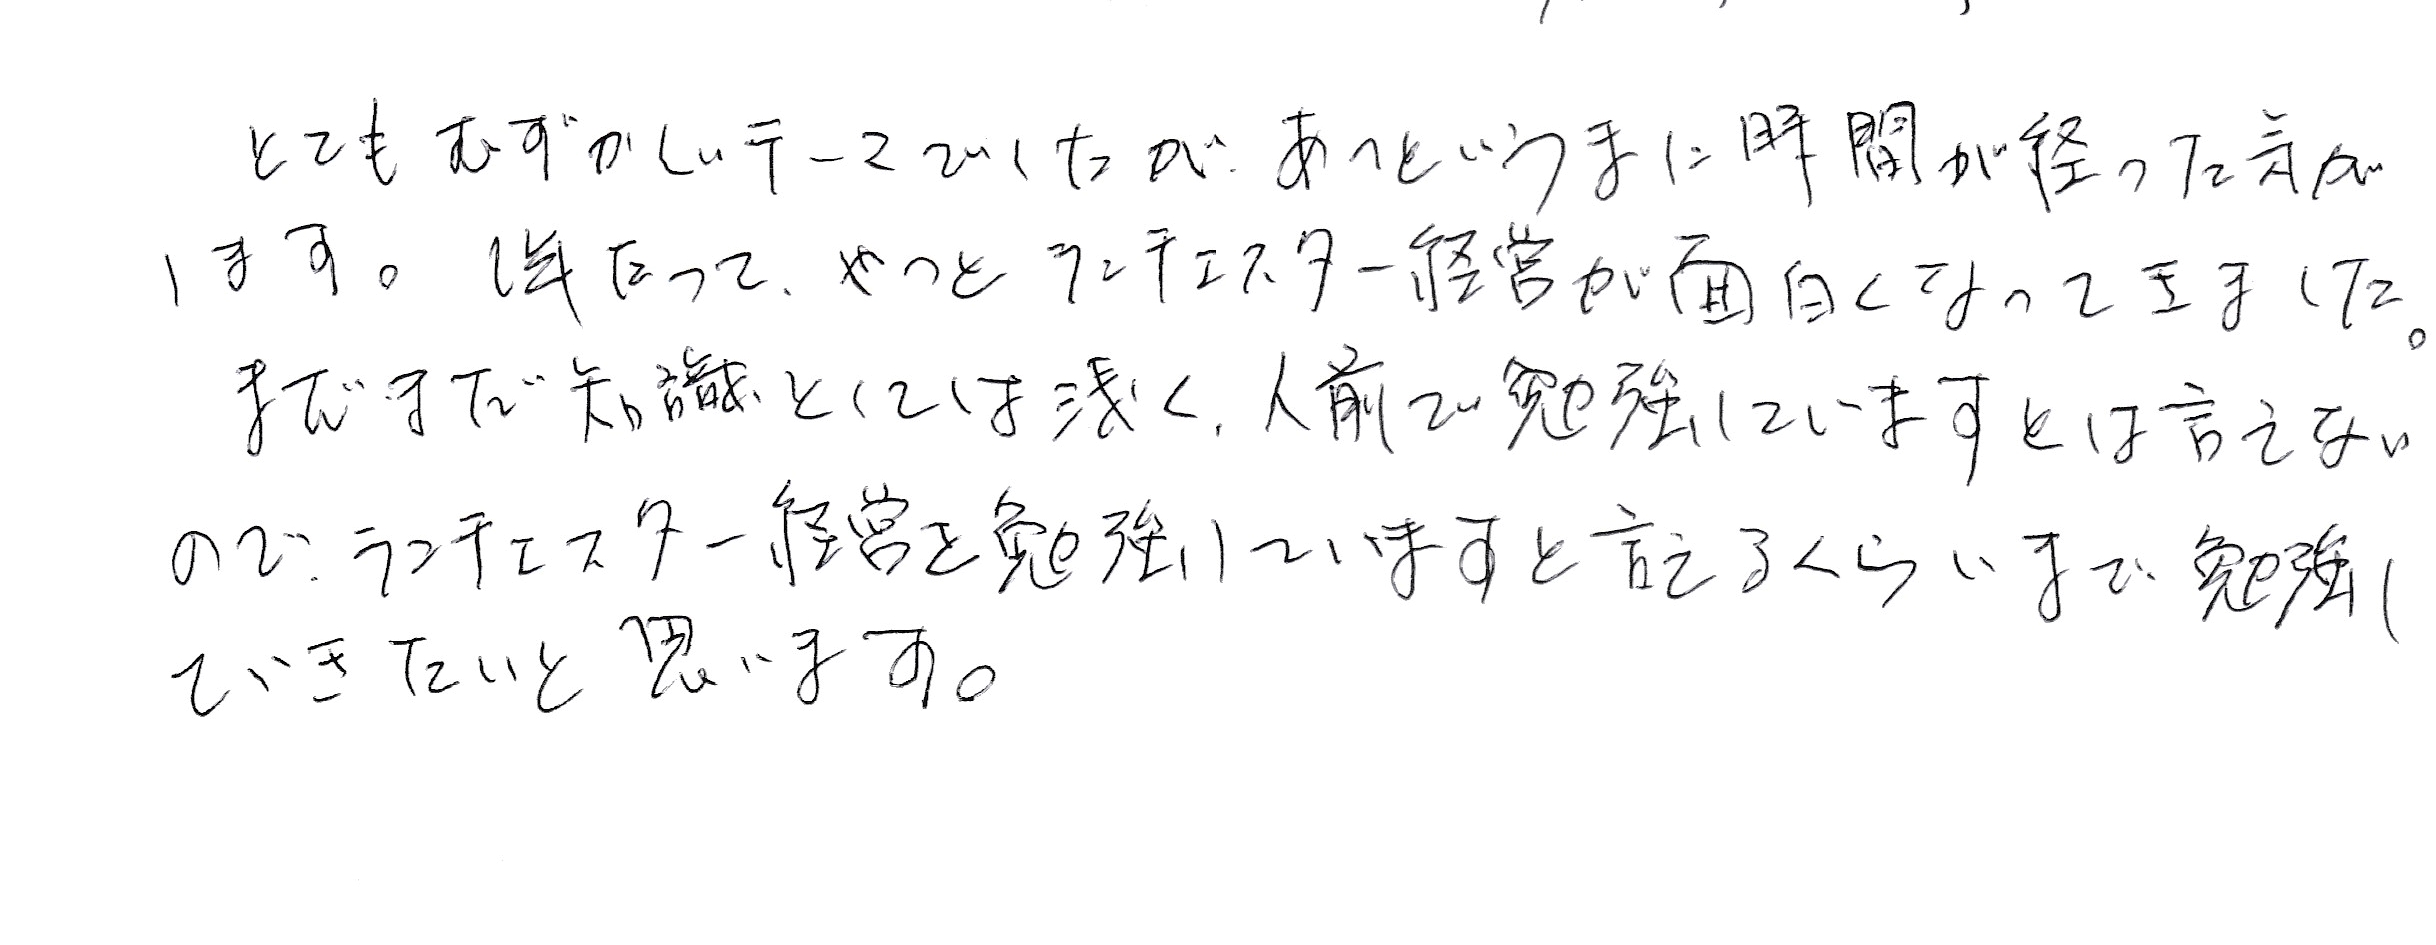 とてもむずかしいテーマでしたが、あっというまに時間が経った気が
します。1年たって、やっとランチェスター経営が面白くなってきました。
まだまだ知識としては浅く、人前で勉強していますとは言えない
ので、ランチェスター経営を勉強していますと言えるくらいまで勉強し
ていきたいと思います。